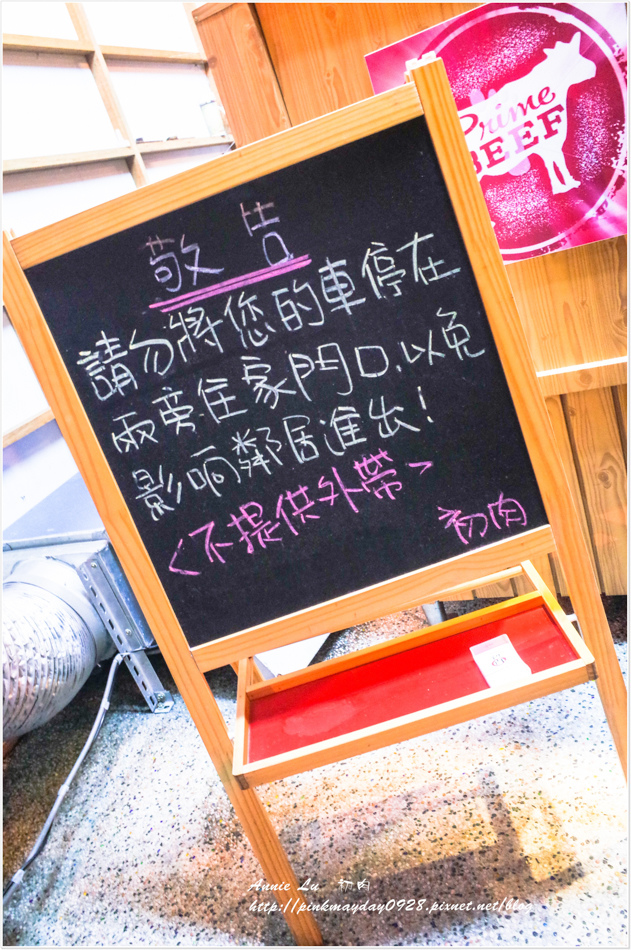 Prime
BEEF
敬告
請勿將您的車停在
兩旁住家門口,以免
影响鄰居進出!
<不提供外帶>
初肉
Annie Lu 初肉
http://pinkmayday0928.pixnet.net/blog